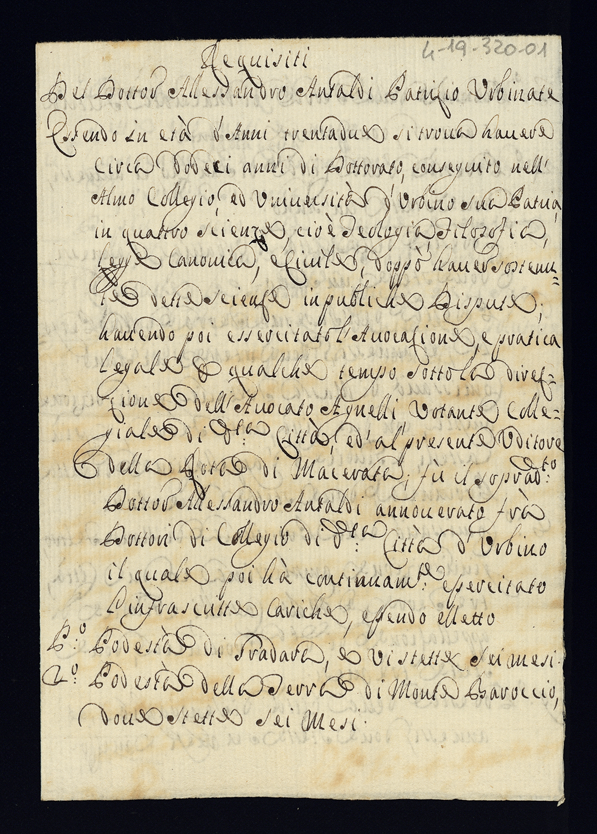 4-19-320-01
Requisiti
Del Dottor Alessandro Antaldi Patrizio Urbinate
Essendo in età d'Anni trentadue si troua hauere
circa dodeci anni di Dottorato, conseguito nell'
Almo Collegio, ed Vniuersità d'Urbino sua Patria,
in quattro scienze, cioè Teologia, Filosofia,
legge Canonica, e Ciuile, doppo hauer sostenu=
te dette scienze in publiche Dispute;
hauendo poi essercitato l'Auocazione, e pratica
legale qualche tempo sotto la direz=
zione dell'Auocato Agnelli Votante Colle=
giale di d.ta Città, ed' al presente Vditore
della Rota di Macerata, fu il soprad.to
Dottor Alessandro Antaldi annouerato frà
Dottori di Collegio di d.ta Città d'Urbino
il quale poi hà continuam.te essercitato
l'infrascritte Cariche, essendo eletto
P.o Podestà di Fradara, e vi stette sei mesi.
2.o Podestà della Terra di Monte Baroccio,
doue stette sei Mesi.